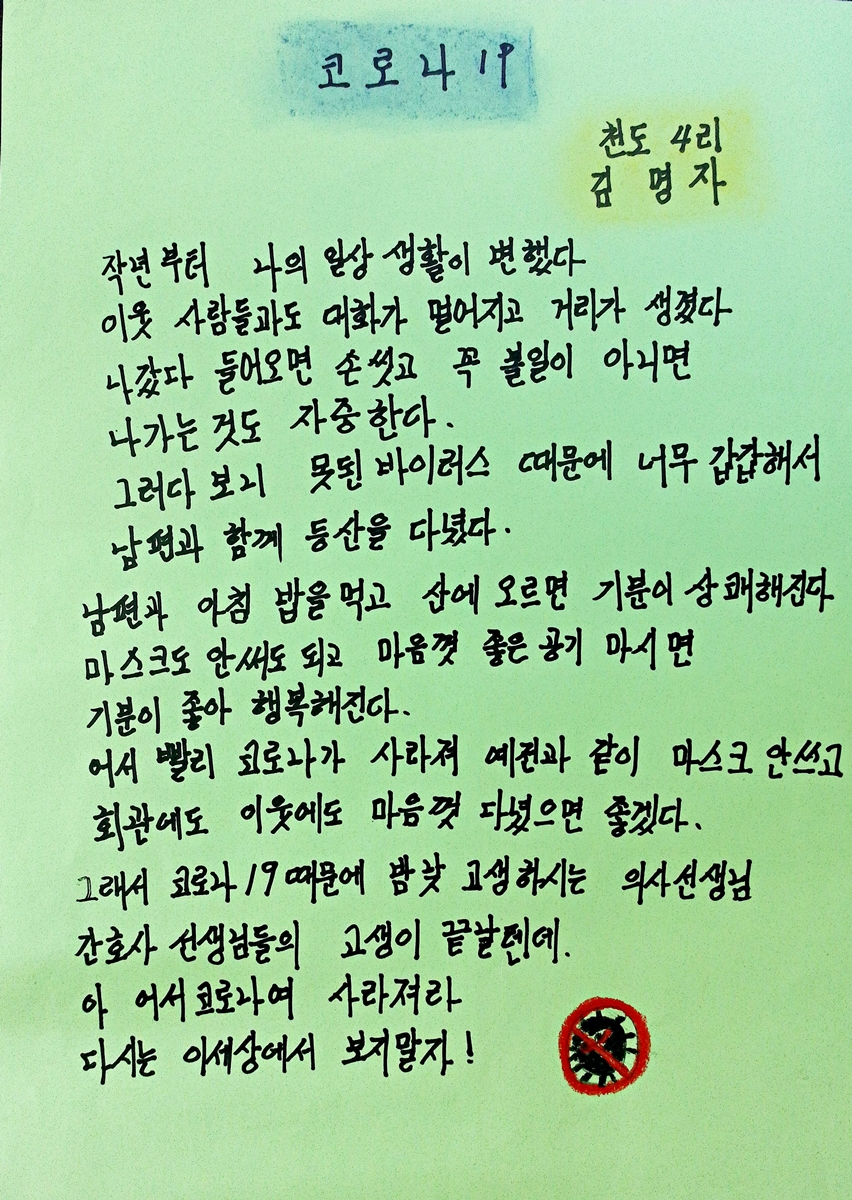 코로나 19
천도 4리
김 명 자
작년부터 나의 일상 생활이 변했다
이웃 사람들과도 대화가 멀어지고 거리가 생겼다
나갔다 들어오면 손씻고 꼭 볼일이 아니면
나가는 것도 자중한다.
그러다 보니 못된 바이러스 때문에 너무 갑갑해서
남편과 함께 등산을 다녔다.
남편과 아침 밥을 먹고 산에 오르면 기분이 상쾌해진다
마스크도 안써도 되고 마음껏 좋은 공기 마시면
기분이 좋아 행복해진다.
어서 빨리 코로나가 사라져 예전과 같이 마스크 안쓰고
회관에도 이웃에도 마음껏 다녔으면 좋겠다.
그래서 코로나 19 때문에 밤낮 고생하시는 의사선생님
간호사 선생님들의 고생이 끝날텐데.
아 어서 코로나여 사라져라
다시는 이세상에서 보지말자!